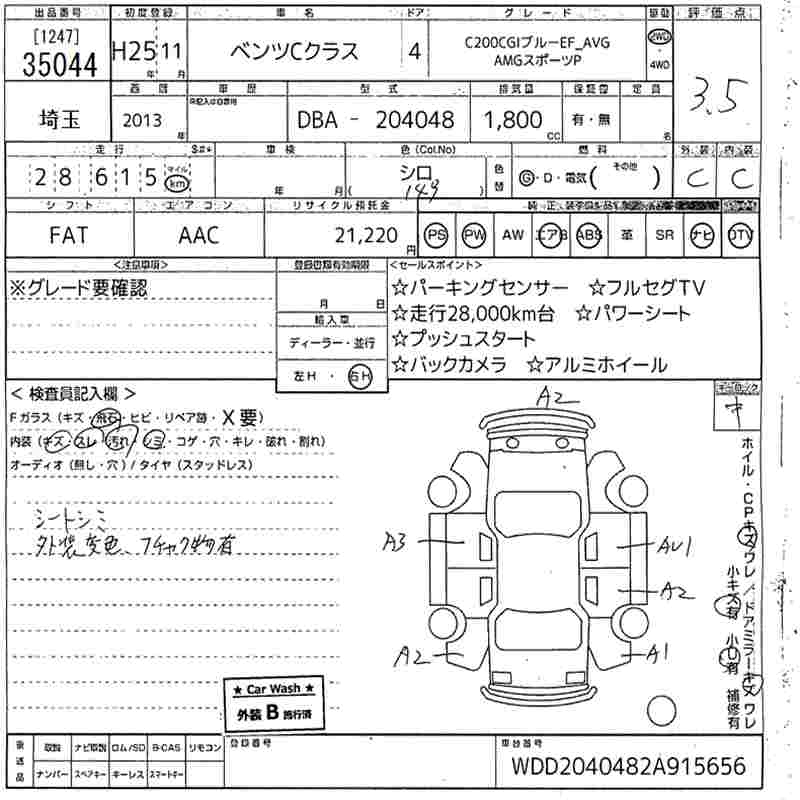 出品番号 初度登録 車名 ドア グレード 駆動 評価点
[1247]
35044 H25 11 ベンツCクラス 4 C200CGIブルーEF_AVG 2WD
年 月 AMGスポーツP 4WD
3.5
西暦 車歴 型式 排気量 保証書 定員
埼玉 2013 年 DBA - 204048 1,800 CC 有・無 名
走行 車検 色(Col.No) 燃料 外装 内装
28615 マイル km 年 月 シロ ( 149 ) 色替 G・D・電気( その他 ) C C
シフト エアコン リサイクル預託金
FAT AAC 21,220 円 PS PW AW エアB ABS 革 SR ナビ TV
<注意事項> <セールスポイント>
※グレード要確認 ☆パーキングセンサー ☆フルセグTV
月 日 ☆走行28,000km台 ☆パワーシート
輸入車 ☆プッシュスタート
ディーラー・並行 ☆バックカメラ ☆アルミホイール
左H・右H
< 検査員記入欄 >
Fガラス (キズ・飛石・ヒビ・リペア跡・X要)
内装 (キズ・スレ・汚れ・シミ・コゲ・穴・キレ・破れ・割れ)
オーディオ (無し・穴) / タイヤ (スタッドレス)
シートシミ
外装変色、フチャク物有
A2
A3 AU1
A2
A2 A1
ホイル・CPキズワレ/ドアミラーキズワレ
小キズ有 小U有 補修有
★ Car Wash ★
外装 B 施行済
後送品 取説 ナビ取説 ロム/SD B-CAS リモコン 登録番号 車台番号
ナンバー スペアキー キーレス スマートキー WDD2040482A915656